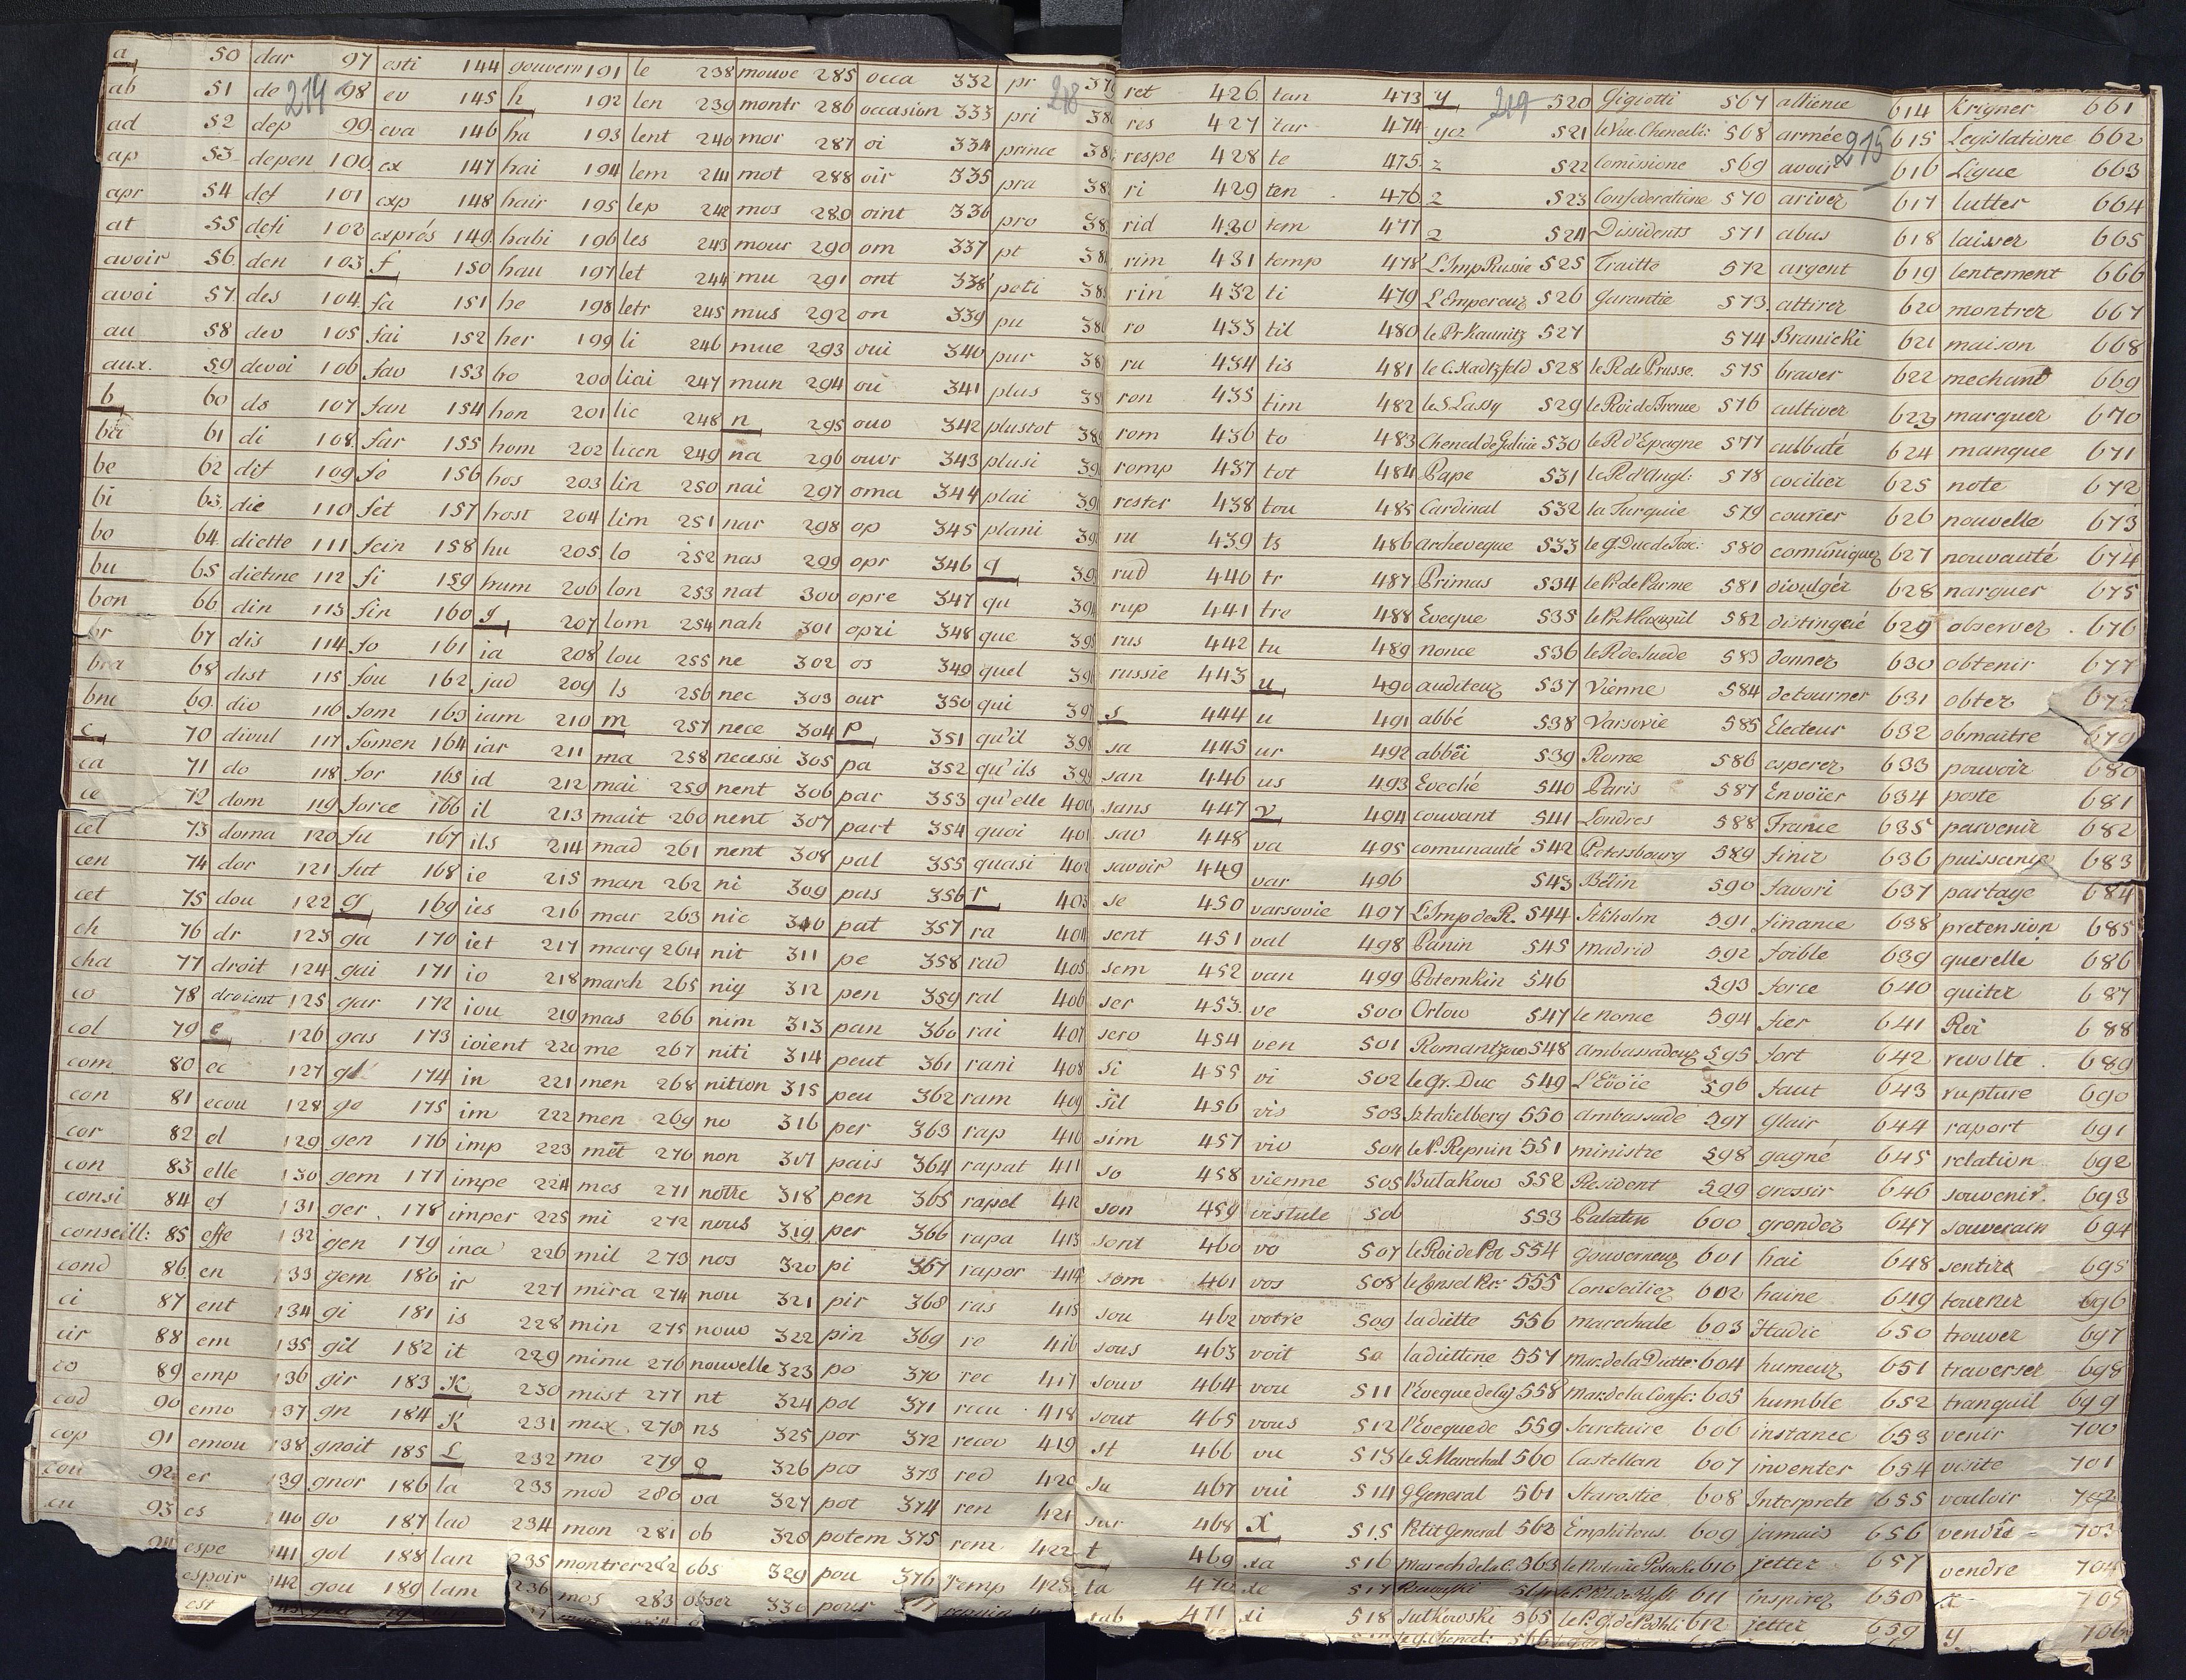 a 50
ab 51
ad 52
ap 53
apr 54
at 55
avoir 56
avoi 57
au 58
aux. 59
b 60
ba 61
be 62
bi 63
bo 64
bu 65
bon 66
br 67
bra 68
bne 69
c 70
ca 71
ce 72
cel 73
cen 74
cet 75
ch 76
cha 77
co 78
col 79
com 80
con 81
cor 82
con 83
consi 84
conseill: 85
cond 86
ci 87
cir 88
co 89
cod 90
cop 91
cou 92
cu 93
94
dar 97
de 98
214
dep 99
depen 100
def 101
defi 102
den 103
des 104
dev 105
devoi 106
ds 107
di 108
dif 109
die 110
diette 111
dietine 112
din 113
dis 114
dist 115
div 116
divul 117
do 118
dom 119
doma 120
dor 121
dou 122
dr 123
droit 124
droient 125
e 126
ec 127
ecou 128
el 129
elle 130
ef 131
effe 132
en 133
ent 134
em 135
emp 136
emo 137
emou 138
er 139
es 140
espe 141
espoir 142
est
esti 144
ev 145
eva 146
ex 147
exp 148
exprés 149
f 150
fa 151
fai 152
fav 153
fan 154
far 155
fe 156
fet 157
fein 158
fi 159
fin 160
fo 161
fou 162
fom 163
fomen 164
for 165
force 166
fu 167
fut 168
g 169
ga 170
gai 171
gar 172
gas 173
gl 174
ge 175
gen 176
gem 177
ger 178
gen 179
gem 180
gi 181
gil 182
gir 183
gn 184
gnoit 185
gnor 186
go 187
gol 188
gou 189
gouvern 191
h 192
ha 193
hai 194
hair 195
habi 196
hau 197
he 198
her 199
ho 200
hon 201
hom 202
hos 203
host 204
hu 205
hum 206
J 207
ia 208
jad 209
iam 210
iar 211
id 212
il 213
ils 214
ie 215
ies 216
iet 217
io 218
iou 219
ioient 220
in 221
im 222
imp 223
impe 224
imper 225
ina 226
ir 227
is 228
it 229
K 230
K 231
L 232
la 233
lad 234
lan 235
lam 236
le 238
len 239
lent 240
lem 241
lep 242
les 243
let 244
letr 245
li 246
liai 247
lic 248
licen 249
lin 250
lim 251
lo 252
lon 253
lom 254
lou 255
ls 256
m 257
ma 258
mai 259
mait 260
mad 261
man 262
mar 263
marq 264
march 265
mas 266
me 267
men 268
men 269
met 270
mes 271
mi 272
mil 273
mira 274
min 275
minu 276
mist 277
mix 278
mo 279
mod 280
mon 281
montrer 282
mos 283
mouve 285
montr 286
mor 287
mot 288
mos 289
mour 290
mu 291
mus 292
mue 293
mun 294
n 295
na 296
nai 297
nar 298
nas 299
nat 300
nah 301
ne 302
nec 303
nece 304
necessi 305
nent 306
nent 307
nent 308
ni 309
nic 310
nit 311
nig 312
nim 313
niti 314
nition 315
no 316
non 317
notre 318
nous 319
nos 320
nou 321
nouv 322
nouvelle 323
nt 324
ns 325
o 326
oa 327
ob 328
obs 329
obser 330
occa 332
occasion 333
oi 334
oir 335
oint 336
om 337
ont 338
on 339
oui 340
ou 341
ouv 342
ouvr 343
oma 344
op 345
opr 346
opre 347
opri 348
os 349
our 350
p 351
pa 352
par 353
part 354
pal 355
pas 356
pat 357
pe 358
pen 359
pan 360
peut 361
peu 362
per 363
pais 364
pen 365
per 366
pi 367
pir 368
pin 369
po 370
pol 371
por 372
pos 373
pot 374
potem 375
pou 376
pour
pr 379
218
pri
prince
pra
pro
pt
peti
pu
pur
plus
plustot
plusi
plai
plani
q
qu
que
quel
qui
qu'il 398
qu'ils 399
qu'elle 400
quoi 401
quasi 402
r 403
ra 404
rad 405
ral 406
rai 407
rani 408
ram 409
rap 410
rapat 411
rapel 412
rapa 413
rapor 414
ras 415
re 416
rec 417
recu 418
recev 419
red 420
ren 421
rem 422
remp 423
ret 426
res 427
respe 428
ri 429
rid 430
rim 431
rin 432
ro 433
ru 434
ron 435
rom 436
romp 437
rester 438
ru 439
rud 440
rup 441
rus 442
russie 443
s 444
sa 445
san 446
sans 447
sav 448
savoir 449
se 450
sent 451
sem 452
ser 453
sero 454
si 455
sil 456
sim 457
so 458
son 459
sont 460
som 461
sou 462
sous 463
souv 464
sout 465
st 466
su 467
sur 468
t 469
ta 470
tab 471
tan 473
tar 474
te 475
ten 476
tem 477
temp 478
ti 479
til 480
tis 481
tim 482
to 483
tot 484
tou 485
ts 486
tr 487
tre 488
tu 489
u 490
u 491
ur 492
us 493
v 494
va 495
var 496
varsovie 497
val 498
van 499
ve 500
ven 501
vi 502
vis 503
vio 504
vienne 505
vistule 506
vo 507
vos 508
votre 509
voit
vou 511
vous 512
vu 513
vui 514
X 515
xa 516
xe 517
xi 518
y 520
219
yez 521
z 522
z 523
z 524
L'Imp Russie 525
L'Empereur 526
le Pr Kaunitz 527
le C. Hadtzfeld 528
le S Lassy 529
Chencel de Galicie 530
Pape 531
Cardinal 532
archeveque 533
Primas 534
Eveque 535
nonce 536
auditeur 537
abbé 538
abbéi 539
Eveché 540
couvant 541
comunauté 542
543
L'Imp de R. 544
Panin 545
Potemkin 546
Orlow 547
Romantzow 548
le Gr. Duc 549
Sztakelberg 550
le P. Repnin 551
Bulakow 552
553
le Roi de Pol 554
le Consel Per: 555
la diette 556
la diettine 557
l'Eveque de Cuj 558
l'Eveque de 559
le G. Marechal 560
G General 561
Ptit General 562
Marech de la C. 563
564
Sutkowski 565
le g. Chencel: 566
Gigiotti 567
le Vice Chencel: 568
Comissione 569
Confederatione 570
Dissidents 571
Traitté 572
Garantie 573
574
le R de Prusse. 575
le Roi de France 576
le R d'Espagne 577
le R d'Angl: 578
la Turquie 579
le g. Duc de Tosc: 580
le P. de Parme 581
le Pr. Maximil 582
le R de Suede 583
Vienne 584
Varsovie 585
Rome 586
Paris 587
Londres 588
Petersbourg 589
Bélin 590
Stkholm 591
Madrid 592
593
le nonce 594
Ambassadeur 595
L'Envoïe 596
Ambassade 597
ministre 598
Resident 599
Palatin 600
Gouverneur 601
Conseilier 602
marechale 603
Mar. de la Diette: 604
Mar. de la Confe: 605
Secretaire 606
Castellan 607
Starostie 608
Emphiteus. 609
le Notaire Potocki 610
611
le P. G. de Podhli 612
allience 614
armée 615
215
avoir 616
ariver 617
abus 618
argent 619
attirer 620
Branicki 621
braver 622
cultiver 623
culbuté 624
cocilier 625
courier 626
comuniquer 627
divulgér 628
distingéé 629
donner 630
detourner 631
Electeur 632
esperer 633
Envoïer 634
France 635
finir 636
favori 637
finance 638
foible 639
force 640
fier 641
fort 642
faut 643
Glair 644
gagné 645
grossir 646
gronder 647
hai 648
haine 649
Hadic 650
humeur 651
humble 652
instance 653
inventer 654
Interprete 655
jamais 656
jetter 657
inspirer 658
jetter 659
Krigner 661
Legislatione 662
Ligue 663
lutter 664
laisser 665
lentement 666
montrer 667
maison 668
mechant 669
marquer 670
manque 671
note 672
nouvelle 673
nouvauté 674
narguer 675
observer 676
obtenir 677
obter 678
obmaitre 679
pouvoir 680
poste 681
parvenir 682
puissance 683
partage 684
pretension 685
querelle 686
quiter 687
Roi 688
revolte 689
rupture 690
raport 691
relation 692
souvenir 693
souverain 694
sentire 695
tourner 696
trouver 697
traverser 698
tranquil 699
venir 700
visite 701
vouloir 702
vendit 703
vendre 704
x 705
y 706